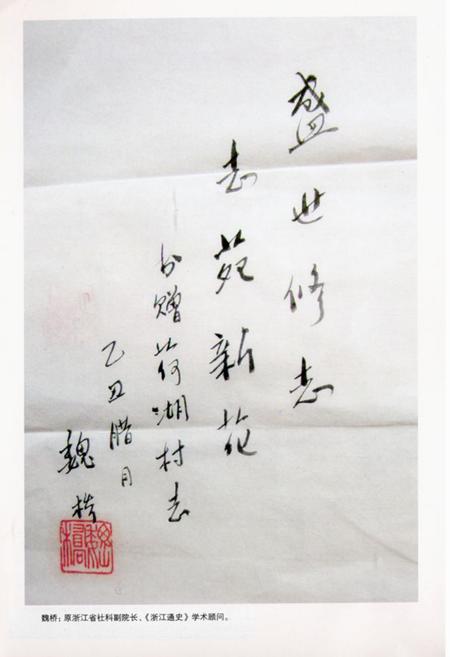 盛世修志
志苑新花
书赠荷湖村志
乙丑腊月
魏桥
魏橋
魏桥：原浙江省社科副院长、《浙江通史》学术顾问。